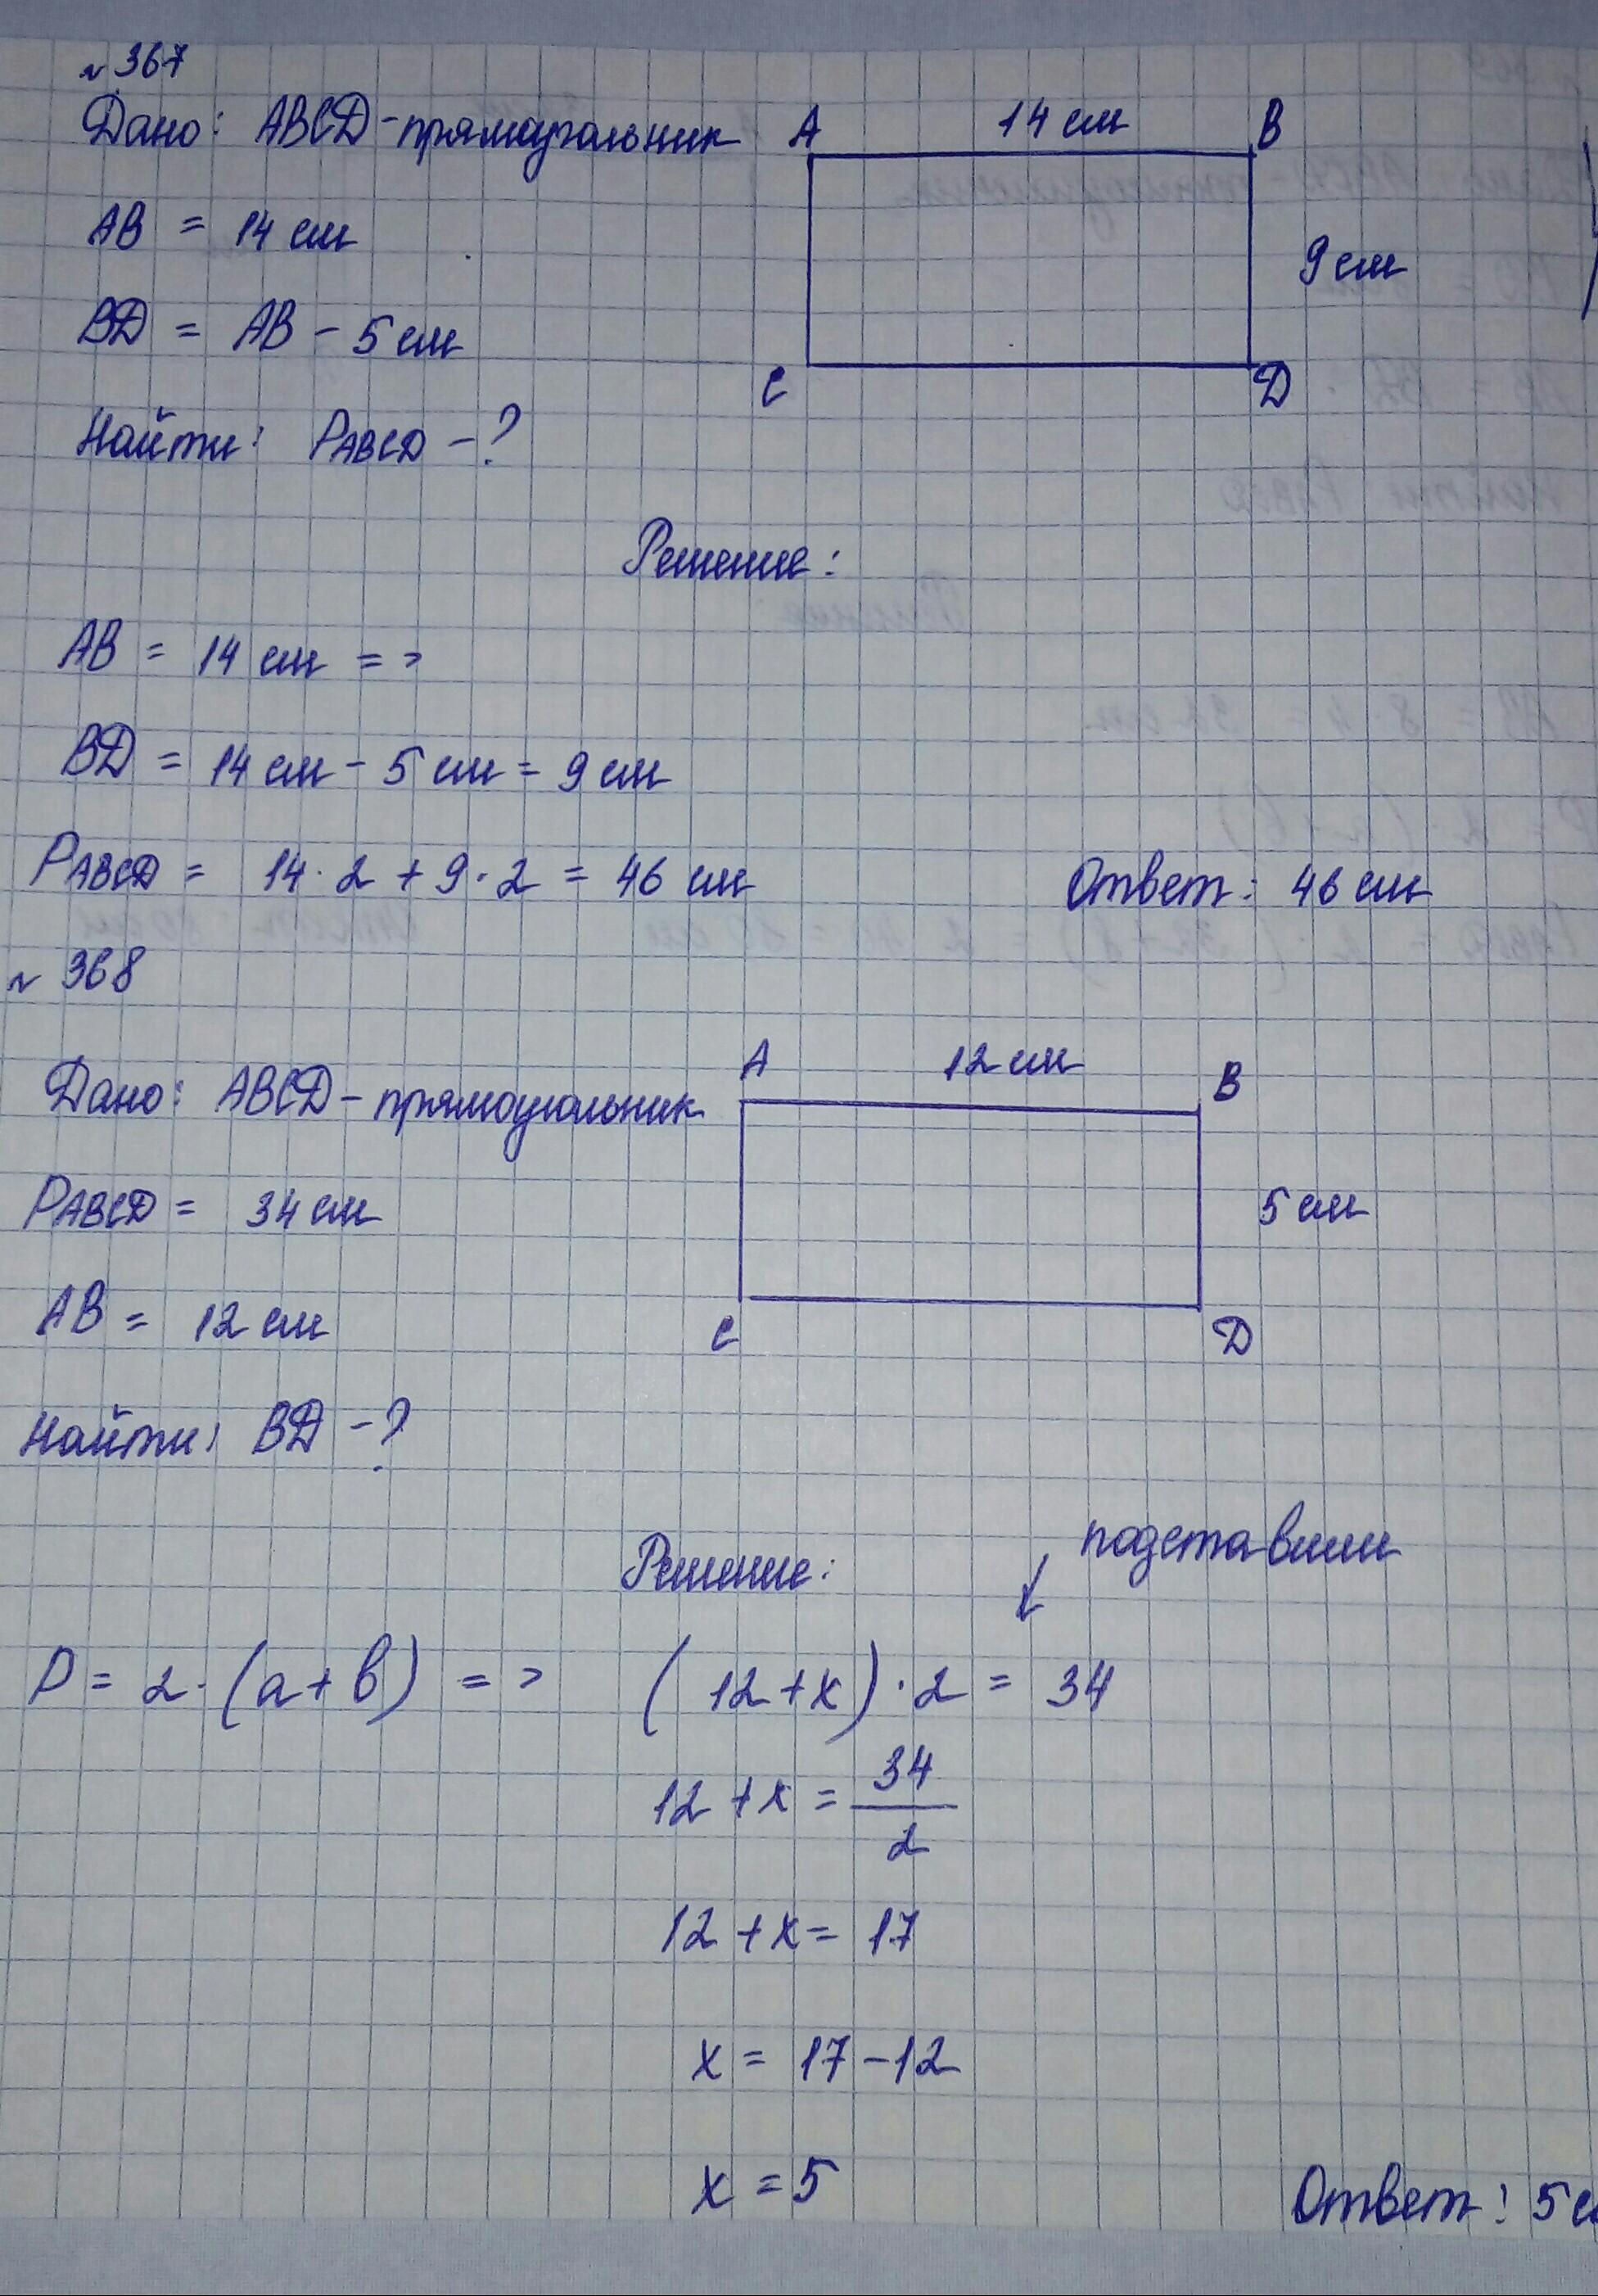 № 367
Дано: ABCD - прямоугольник
A 14 см B
AB = 14 см
9 см
BD = AB - 5 см
C D
Найти: PABCD - ?
Решение:
AB = 14 см =>
BD = 14 см - 5 см = 9 см
PABCD = 14 · 2 + 9 · 2 = 46 см
Ответ: 46 см
№ 368
A 12 см B
Дано: ABCD - прямоугольник
PABCD = 34 см
5 см
AB = 12 см
C D
Найти: BD - ?
подставим
Решение: ↓
P = 2 · (a + b) => (12 + x) · 2 = 34
12 + x = 34/2
12 + x = 17
x = 17 - 12
x = 5
Ответ: 5 с